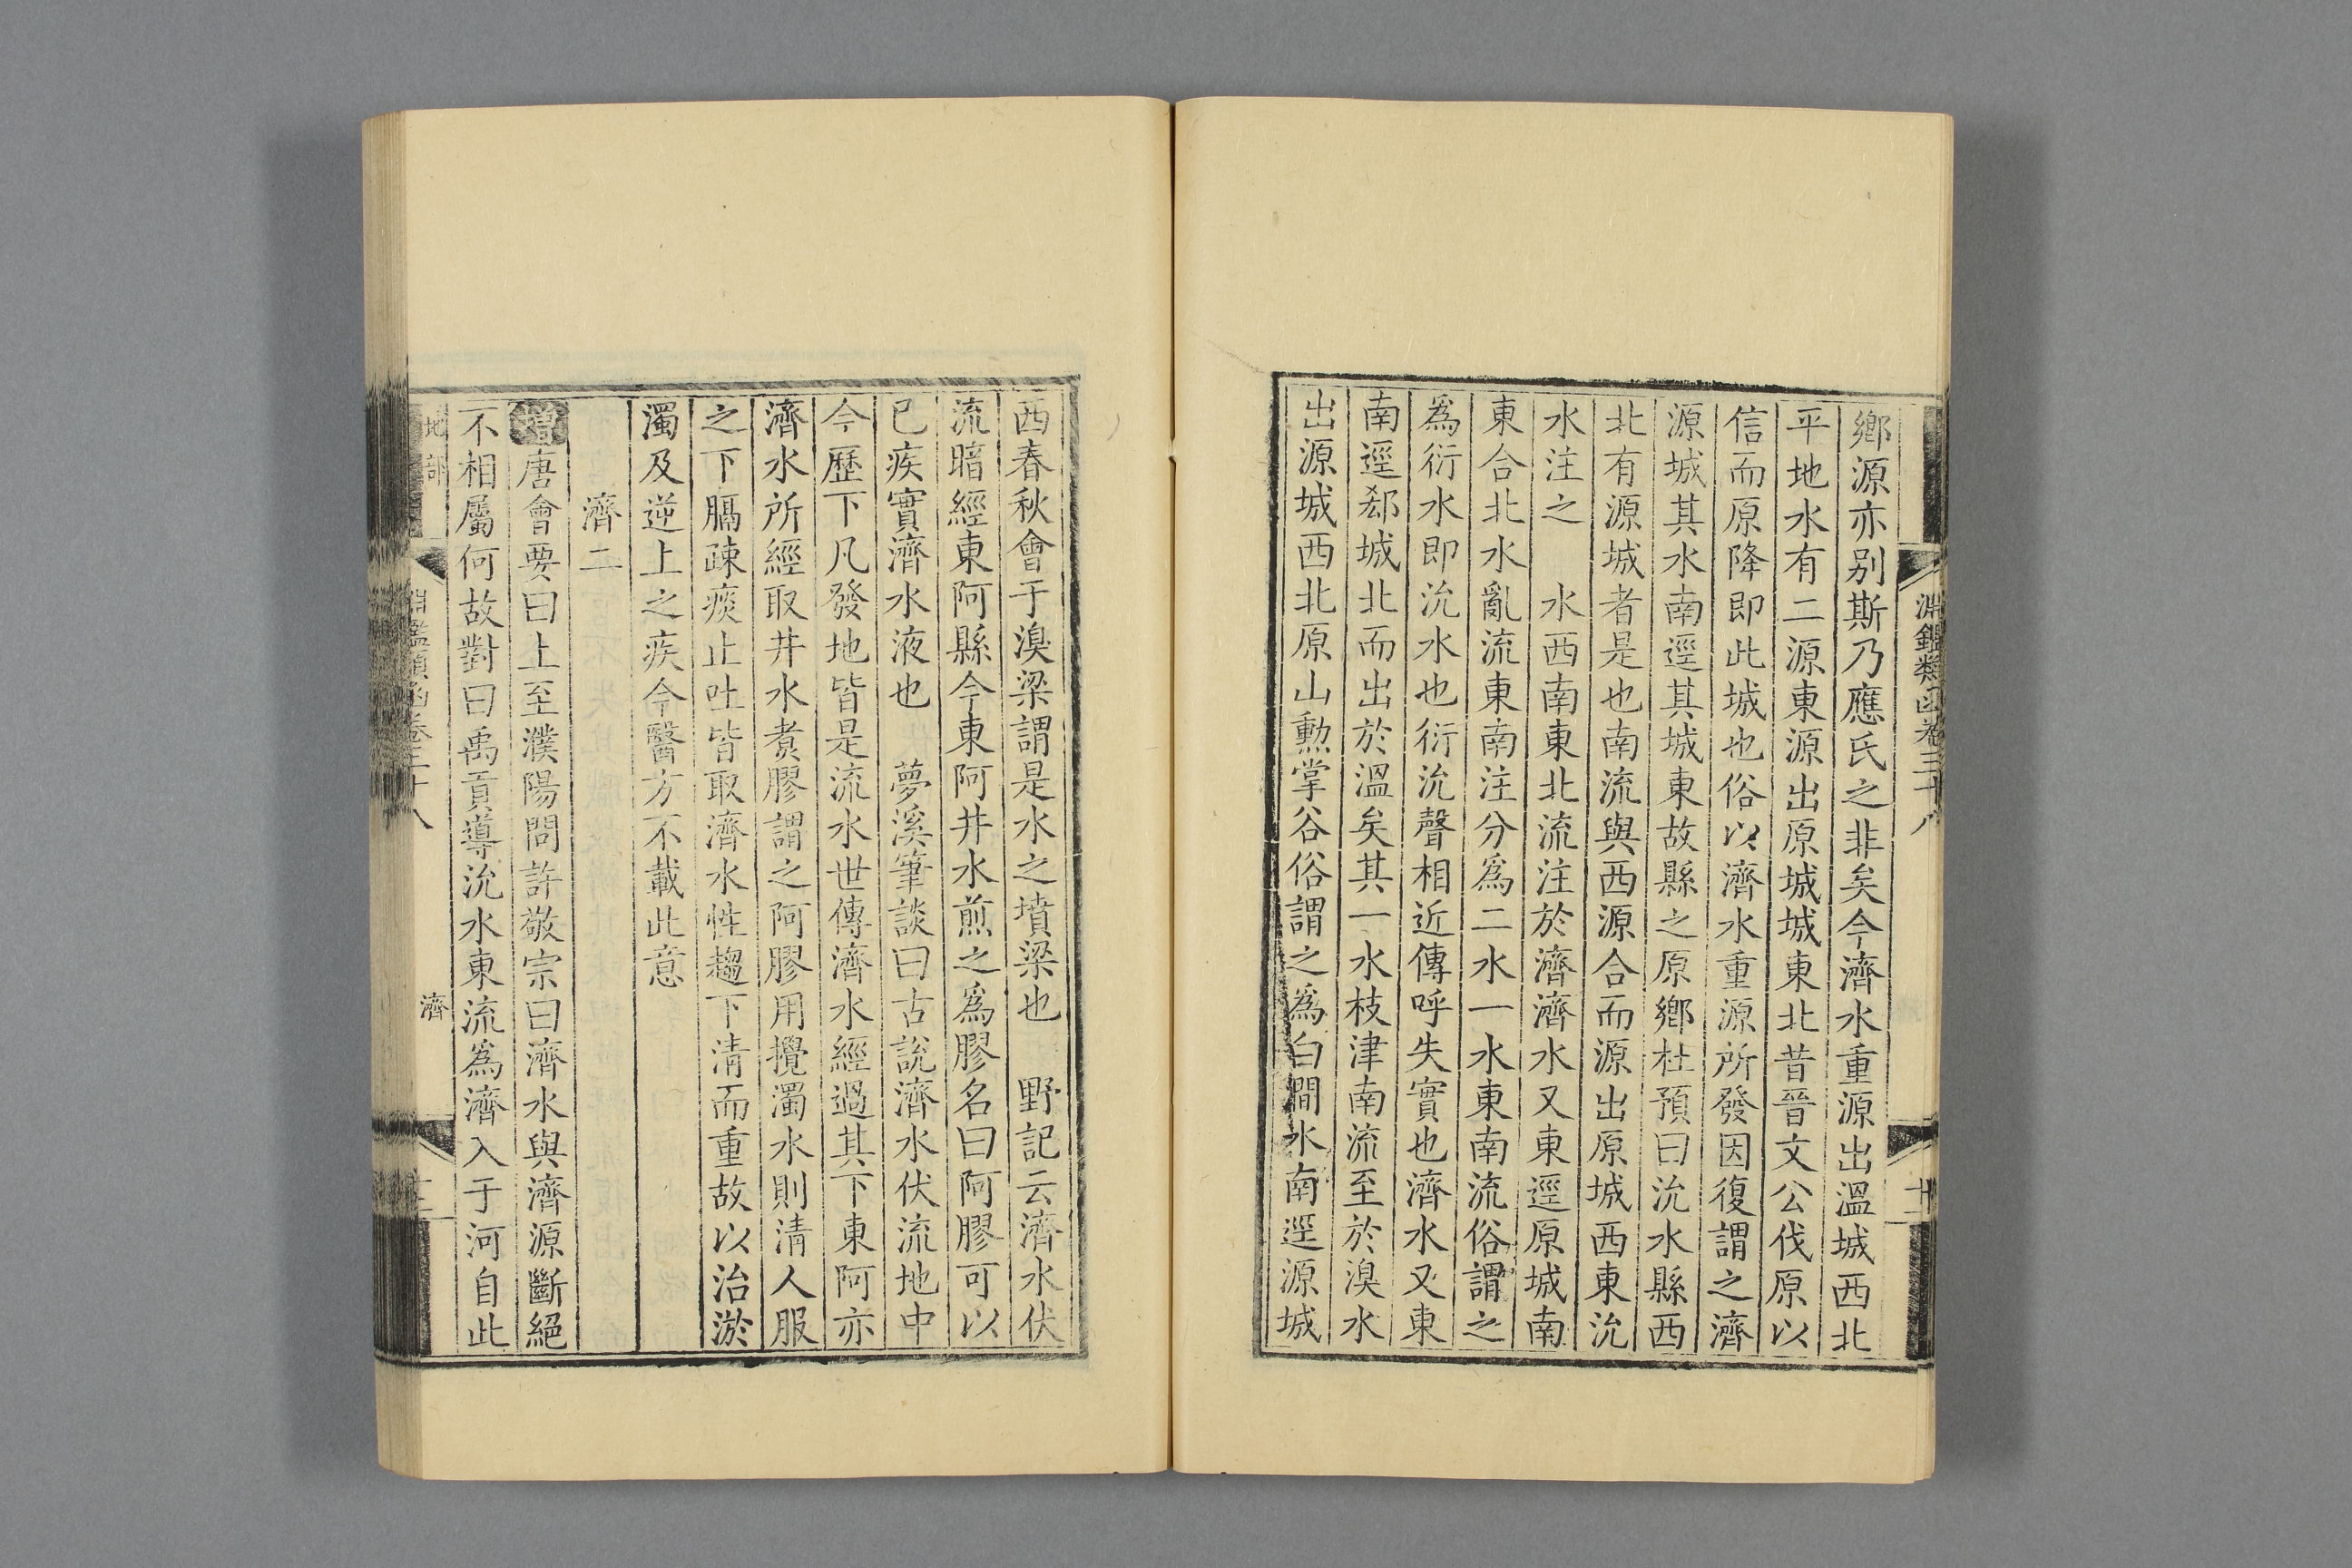 淵鑑類函卷三十八
十二
鄉源亦别斯乃應氏之非矣今濟水重源出溫城西北
平地水有二源東源出原城城東北昔晉文公伐原以
信而原降即此城也俗以濟水重源所發因復謂之濟
源城其水南逕其城東故縣之原鄉杜預曰沇水縣西
北有源城者是也南流與西源合而源出原城西東沇
水注之　水西南東北流注於濟濟水又東逕原城南
東合北水亂流東南注分爲二水一水東南流俗謂之
爲衍水即沇水也衍沇聲相近傳呼失實也濟水又東
南逕郄城北而出於溫矣其一水枝津南流至於溴水
出源城西北原山勲掌谷俗謂之爲白澗水南逕源城
西春秋會于溴梁謂是水之墳梁也　野記云濟水伏
流暗經東阿縣今東阿井水煎之爲膠名曰阿膠可以
已疾實濟水液也　夢溪筆談曰古說濟水伏流地中
今歷下凡發地皆是流水世傳濟水經過其下東阿亦
濟水所經取井水煑膠謂之阿膠用攪濁水則淸人服
之下膈疎痰止吐皆取濟水性趨下淸而重故以治淤
濁及逆上之疾今醫方不載此意
濟二
增唐會要曰上至濮陽問許敬宗曰濟水與濟源斷絕
不相屬何故對曰禹貢導沇水東流爲濟入于河自此
地部
鑑類函卷三十八
濟